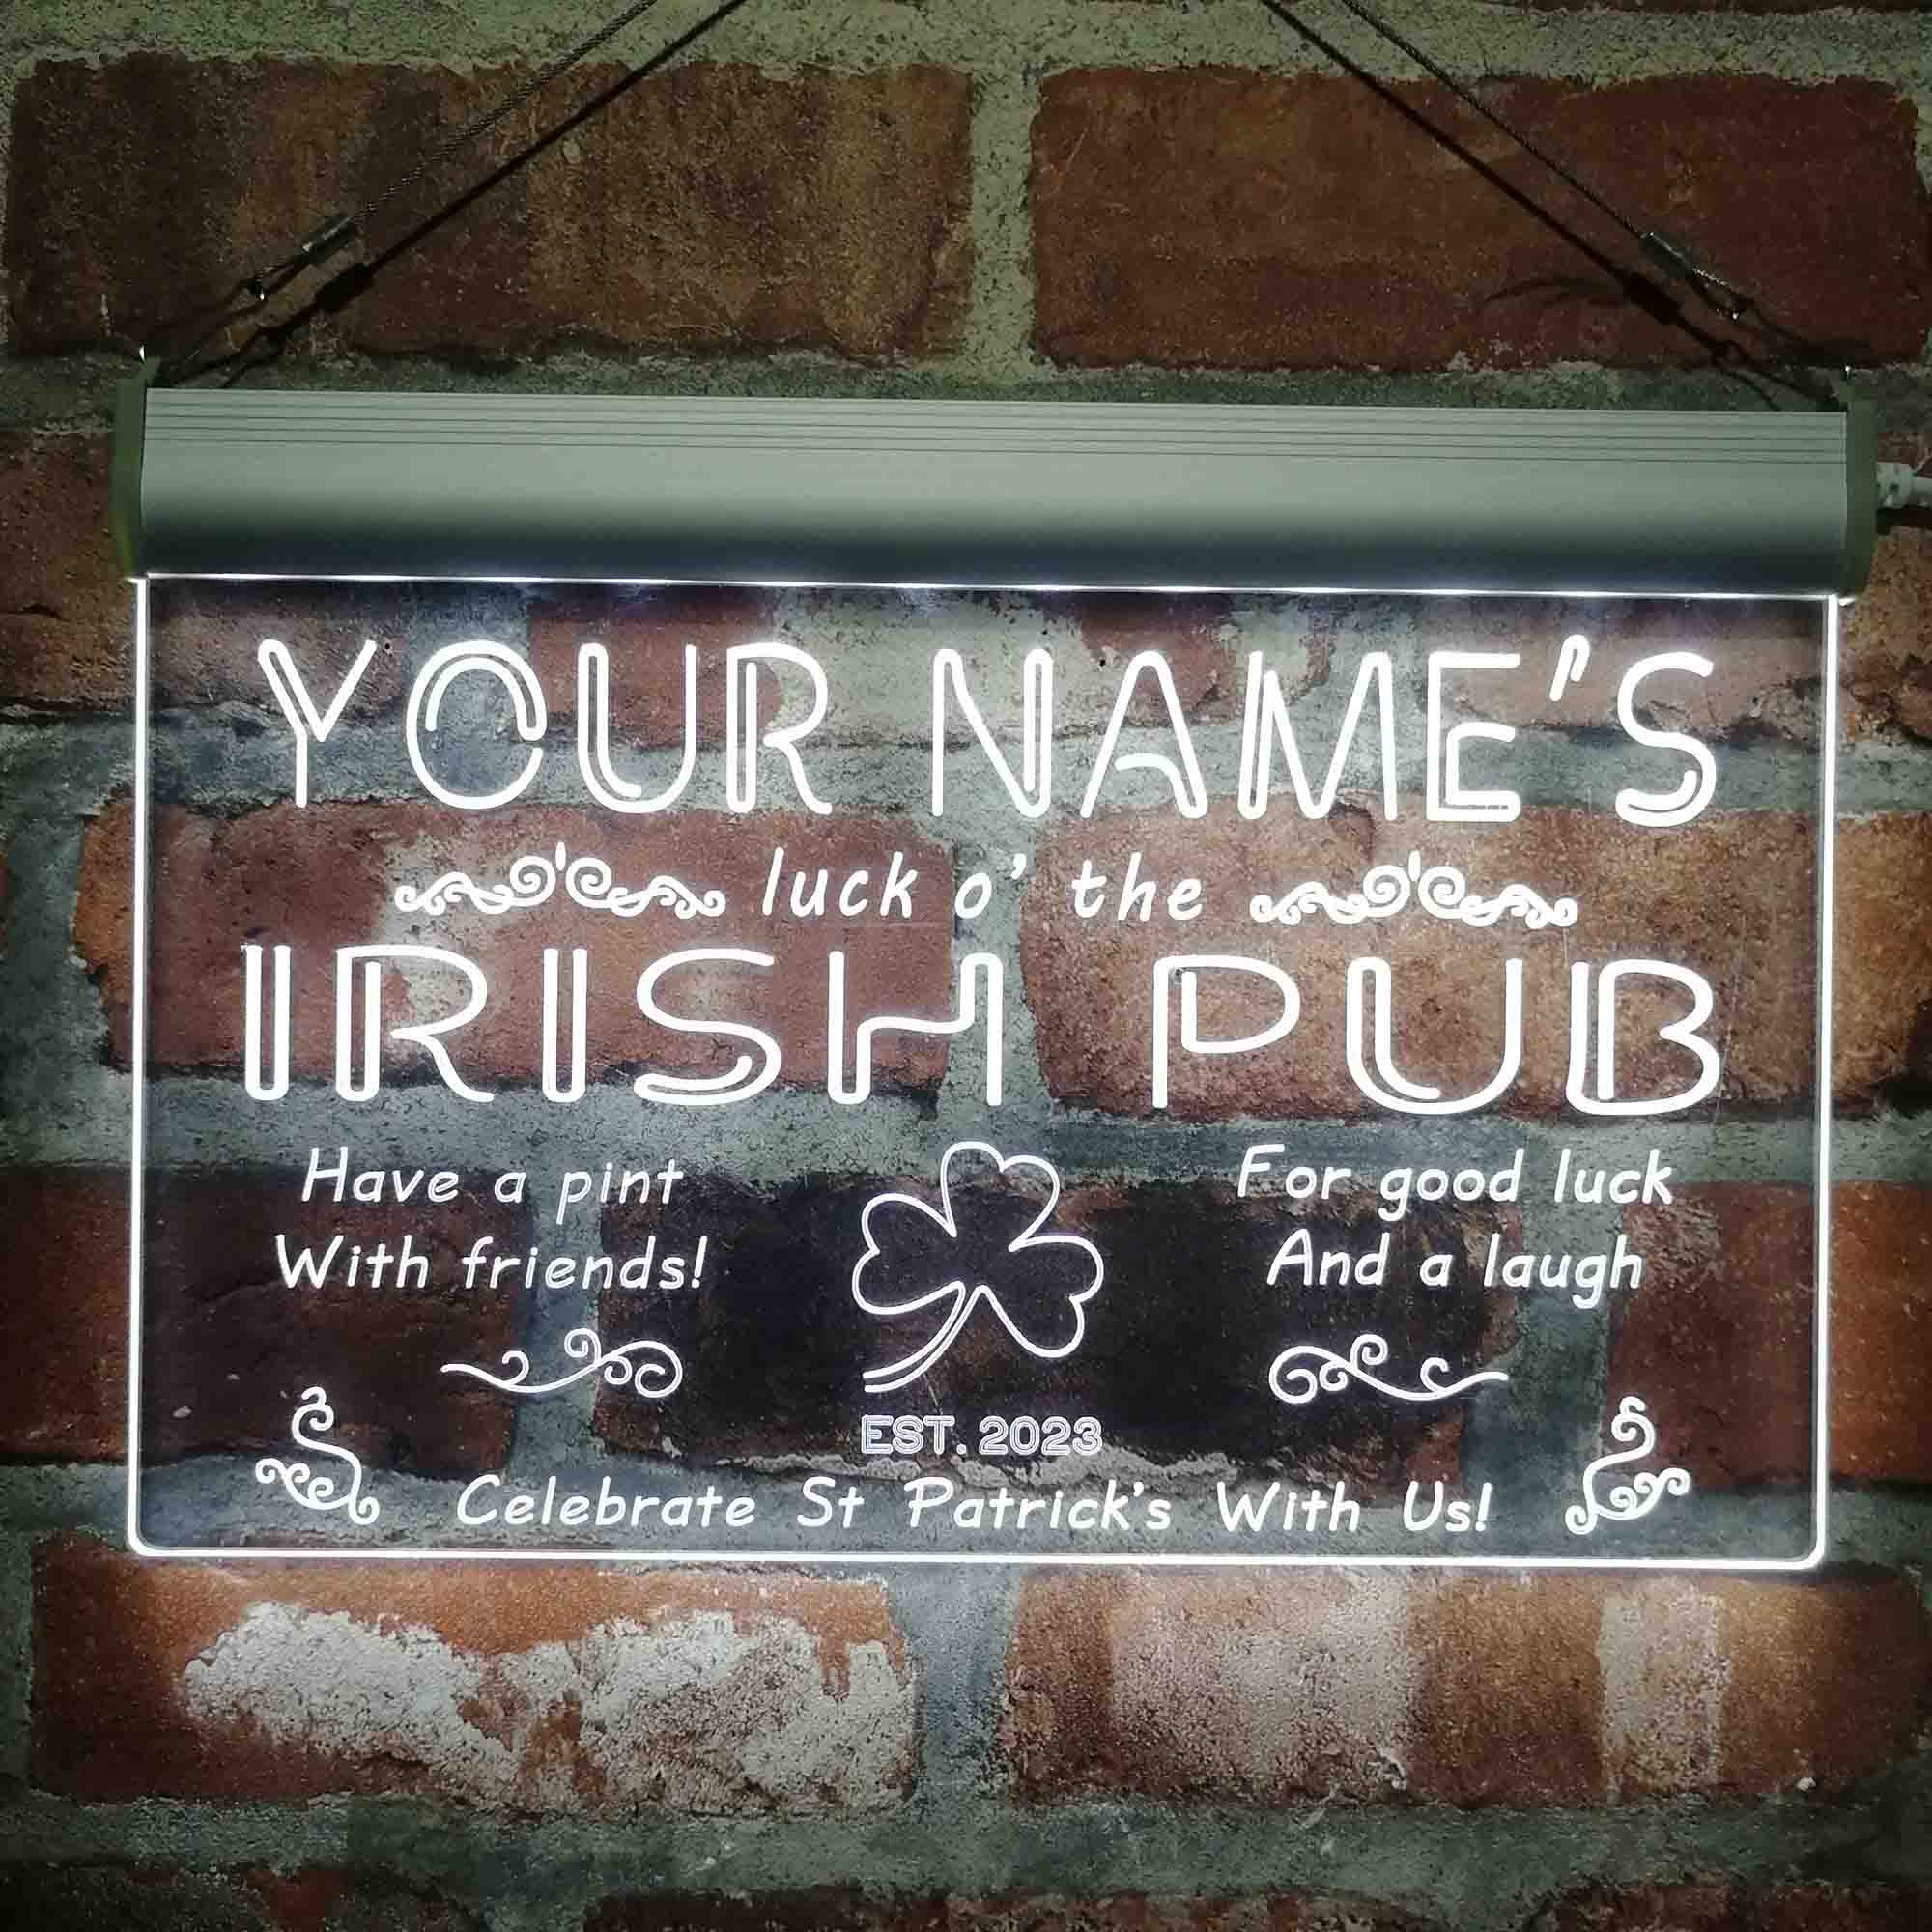 YOUR NAME'S
luck o' the
IRISH PUB
Have a pint
With friends!
For good luck
And a laugh
EST. 2023
Celebrate St Patrick's With Us!